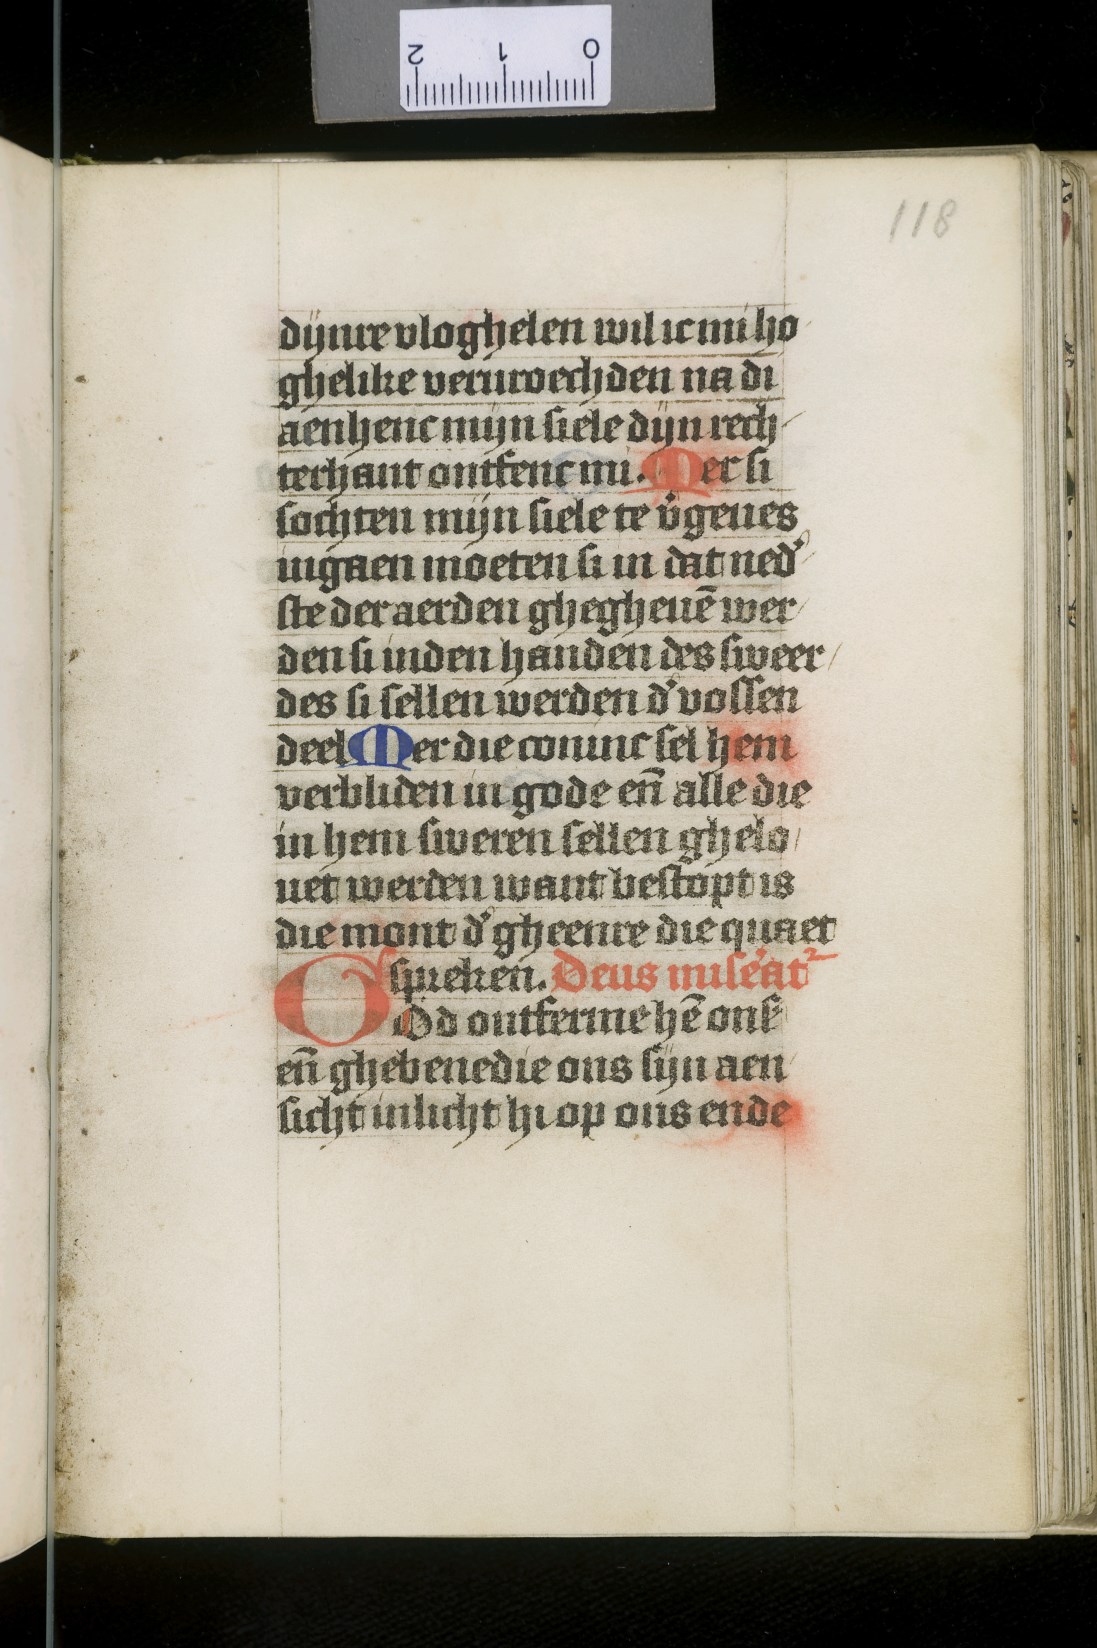 2 1 0
118
dijnre vloghelen wil ic mi ho
ghelike veruroechden na di
aenhenc mijn siele dijn rech
terhant ontfenc mi. Mer si
sochten mijn siele te v̓geues
ingaen moeten si in dat ned̓
ste der aerden ghegheuē wer
den si inden handen des sweer
des si sellen werden d̓ vossen
deel Mer die coninc sel hem
verbliden in gode en̄ alle die
in hem sweren sellen ghelo
uet werden want bestopt is
die mont d̓ gheenre die quaet
spreken. Deus mise̓at²
God ontferme hē ons
en̄ ghebenedie ons sijn aen
sicht inlicht hi op ons ende